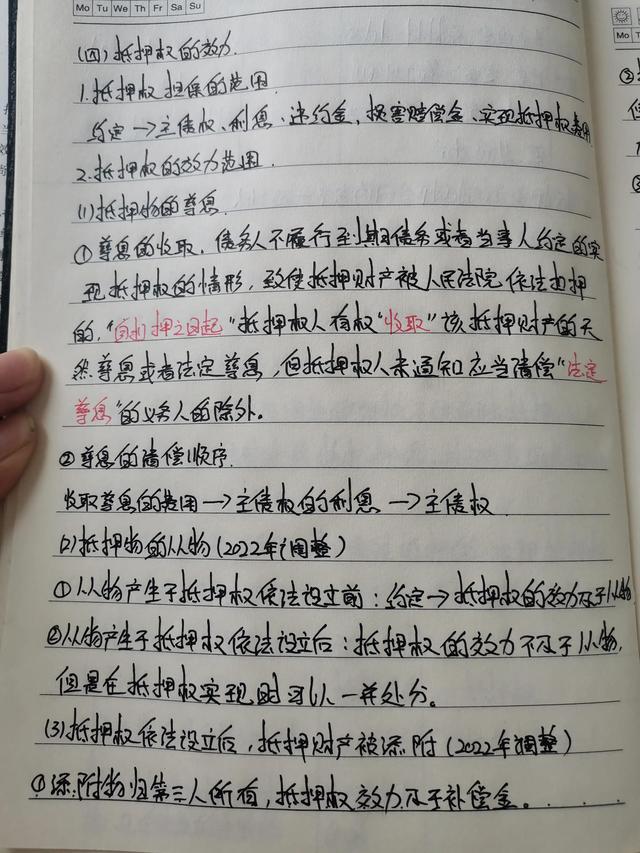 Mo Tu We Th Fr Sa Su
Mo
(四)抵押权的效力.
1.抵押权担保的范围.
约定→主债权、利息、违约金、损害赔偿金、实现抵押权费用
2.抵押权的效力范围.
(1)抵押物的孳息.
①孳息的收取. 债务人不履行到期债务或者当事人约定的实
现抵押权的情形, 致使抵押财产被人民法院依法扣押
的,“自扣押之日起”抵押权人有权“收取”该抵押财产的天
然孳息或者法定孳息, 但抵押权人未通知应当清偿“法定
孳息”的义务人的除外。
②孳息的清偿顺序.
收取孳息的费用→主债权的利息→主债权
(2)抵押物的从物(2022年调整)
①从物产生于抵押权依法设立前:约定→抵押权的效力及于从物
②从物产生于抵押权依法设立后:抵押权的效力不及于从物,
但是在抵押权实现时可以一并处分。
(3)抵押权依法设立后,抵押财产被添附(2022年调整)
①添附物归第三人所有,抵押权效力及于补偿金。